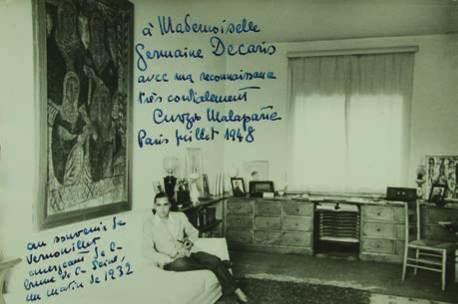 à Mademoiselle
Germaine Decaris
avec ma reconnaissance
très cordialement
Curzio Malaparte
Paris juillet 1948
au souvenir de
Vernouillet
de la
brume de la Seine,
un matin de 1932